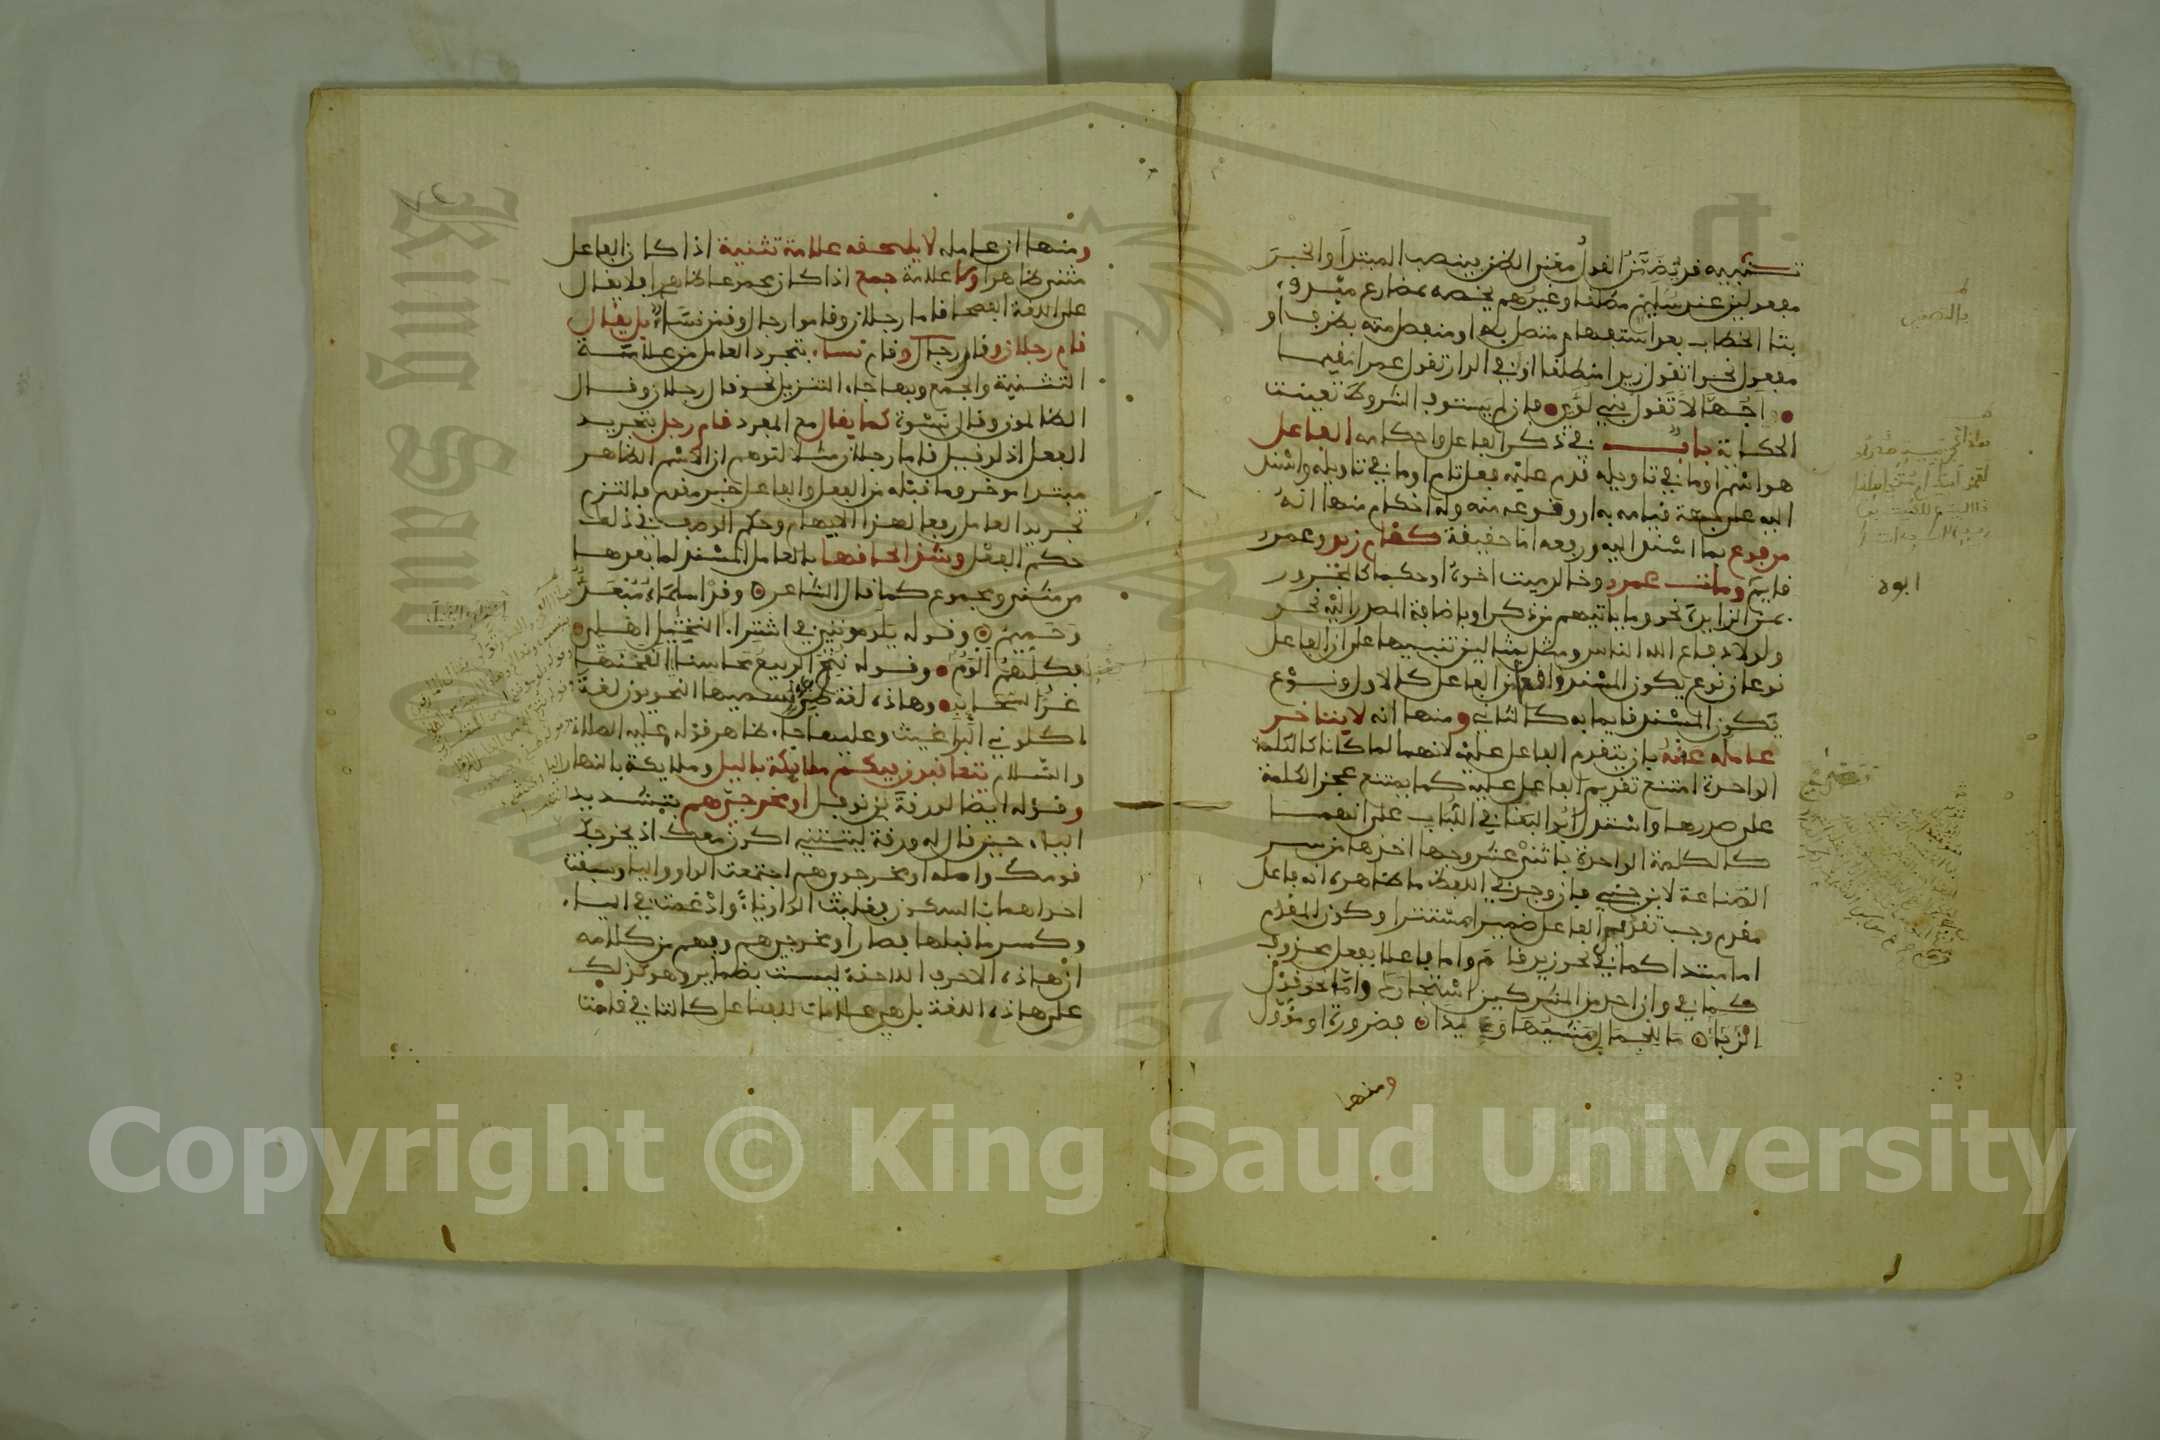 تنبيه قد يضمن القول معنى الظن فينصب المبتدأ والخبر
مفعولين عند سليم مطلقا وغيرهم يخصه بمضارع مبدوء
بتاء الخطاب بعد استفهام متصل به او منفصل منه بظرف او
مفعول نحو اتقول زيدا منطلقا او في الدار تقول عمرا مقيما
اجهالا تقول بني لؤي فان لم يستوف الشروط تعينت
الحكاية باب في ذكر الفاعل واحكامه الفاعل
هو اسم او ما في تاويله قدم عليه فعل تام او ما في تاويله واسند
اليه على جهة قيامه به او وقوعه منه وله احكام منها انه
مرفوع بما اسند اليه ورفعه اما حقيقة كقام زيد وعمرو
قايم ومات عمرو وخالد ميت اخوه او حكما كالمجرور
بمن الزايدة نحو وما ياتيهم من ذكر او باضافة المصدر اليه نحو
ولولا دفاع الله الناس ومثل بمثالين تنبيها على ان الفاعل
نوعان نوع يكون المسند واقعا من الفاعل كالاول ونوع
يكون المسند قايما به كالثاني ومنها انه لا يتاخر
عامله عنه بان يتقدم الفاعل عليه لانهما لما كانا كالكلمة
الواحدة امتنع تقديم الفاعل عليه كما يمتنع عجز الكلمة
على صدرها واستدل ابو البقا في اللباب على انهما
كالكلمة الواحدة باثني عشر وجها اخذها من سر
الصناعة لابن جني فان وجد في اللفظ ما ظاهره انه فاعل
مقدم وجب تقدير الفاعل ضميرا مستترا وكون المقدم
اما مبتدا كما في نحو زيد قام واما فاعلا بفعل محذوف
كما في وان احد من المشركين استجارك واما نحو قول
الزباء ما للجمال مشيها وئيدا فضرورة او مؤول
ومنها
بالتضمين
ابوه
ومنها ان عامله لا يلحقه علامة تثنية اذا كان الفاعل
مثنى ظاهرا ولا علامة جمع اذا كان مجموعا ظاهرا فلا يقال
على اللغة الفصحا قاما رجلان وقاموا رجال وقمن نساء بل يقال
قام رجلان وقام رجال وقام نساء بتجرد العامل من علامة
التثنية والجمع وبها جاء التنزيل نحو قال رجلان وقال
الظالمون وقال نسوة كما يقال مع المفرد قام رجل بتجريد
الفعل اذ لو قيل قاما رجلان مثلا لتوهم ان الاسم الظاهر
مبتدا موخر وما قبله من الفعل والفاعل خبر مقدم فالتزم
تجريد العامل رفعا لهذا الايهام وحكم الوصف في ذلك
حكم الفعل وشذ الحاقها بالعامل المسند لما بعدها
من مثنى ومجموع كما قال الشاعر وقد اسلماه مبعد
وحميم وقوله يلومونني في اشتراء النخيل اهلي
فكلهم الوم وقوله نتج الربيع محاسنا القحنها
غر السحايب وهاذه لغة طيء يسميها النحويون لغة
اكلوني البراغيث وعليها جاء ظاهر قوله عليه الصلاة
والسلام يتعاقبون فيكم ملايكة بالليل وملايكة بالنهار
وقوله ايضا لورقة بن نوفل او مخرجي هم بتشديد
الياء حين قال له ورقة ليتني اكون معك اذ يخرجك
قومك واصله او مخرجوي هم اجتمعت الواو والياء وسبقت
احداهما بالسكون فقلبت الواو ياء وادغمت في الياء
وكسر ما قبلها فصار او مخرجي هم وفهم من كلامه
ان هاذه الاحرف اللاحقة ليست بضماير وهو كذلك
على هاذه اللغة بل هي علامات للفاعل كالتا في قامت
King Saud
1957
Copyright © King Saud University